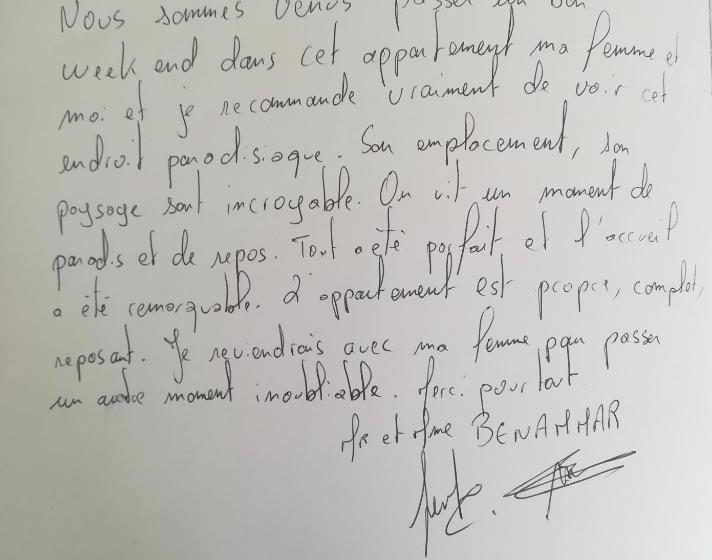 Nous sommes venus passer un bon
week end dans cet appartement ma femme et
moi et je recommande vraiment de voir cet
endroit paradisiaque. Son emplacement, son
paysage sont incroyable. On vit un moment de
paradis et de repos. Tout a été parfait et l'accueil
a été remarquable. L'appartement est propre, complet,
reposant. Je reviendrais avec ma femme pour passer
un autre moment inoubliable. Merci pour tout
Mr et Mme BENAMMAR